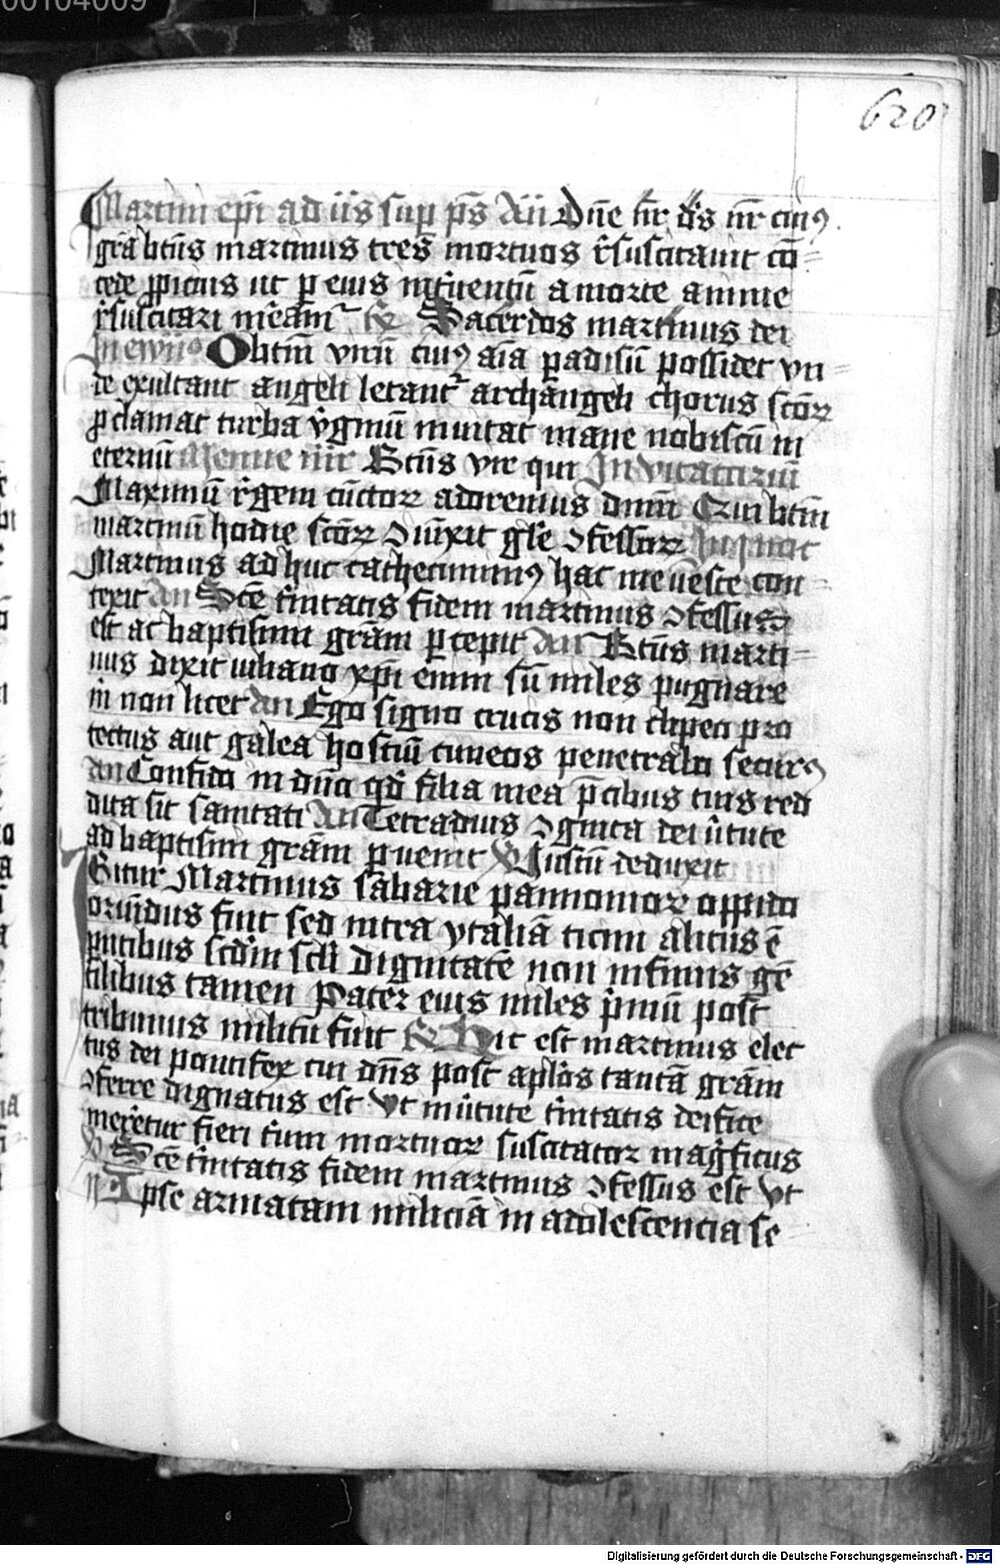 00104009
620
Martini ep̄i ad iis sup̱ p̄s Añ Dn̄e ih̄r d̄s nr̄ cuiꝰ
gr̄a bt̄us martinus tres mortuos r̄suscitauit cō=
cede ꝓpicius ut ꝑ eius int̄uentū a morte anime
r̄suscitari meam̄ꝛ R̸ Sacerdos martinus dei
In ewīo O btm̄ virū cuiꝰ aīa paradisū possidet vn=
de exultant angeli letantꝛ archangeli chorus sc̄oꝝ
ꝓclamat turba v̄ginū inuitat mane nobiscū in
eternū Bt̄us vir qui Inuitatoriū
Maximū r̄gem cūctoꝝ adoremus dn̄m Qui btm̄
martinū hodie sc̄oꝝ ꝯiūxit gl̄e ꝯfessorꝝ
Martinus adhuc cathecuminꝰ hac me ueste con=
texit an Sc̄e t̄nitatis fidem martinus ꝯfessus
est ac baptismi gr̄am ꝑcepit An Bt̄us marti=
nus dixit iuliano xp̄i enim sū miles pugnare
m̄ non licet an Ego signo crucis non clipeo pro
tectus aut galea hostiū cuneos penetrabo securꝰ
an Confido in dn̄o qd̄ filia mea p̄cibus tuis red
dita sit sanitati An Tetradius ꝯgnita dei ūtute
ad baptismi gr̄am ꝑuenit V̸ Iustū deduxit
IGitur Martinus sabarie pannonioꝝ oppido
oriūdus fuit sed intra ytaliā ticini alitus ē
p̄ntibus scd̄m scl̄i dignitatē non infimis gē
tilibus tamen Pater eius miles p̄mū post
tribunus militū fuit R̸ Hic est martinus elec
tus dei pontifex cui dn̄s post apl̄os tantā gr̄am
ꝯferre dignatus est Vt in ūtute t̄nitatis deifice
meretur fieri t̄um mortuoꝝ suscitator mag̃ficus
V̸ Sc̄e t̄nitatis fidem martinus ꝯfessus est Vt
Ipse armatam miliciā in adolescencia se
Digitalisierung gefördert durch die Deutsche Forschungsgemeinschaft - DFG